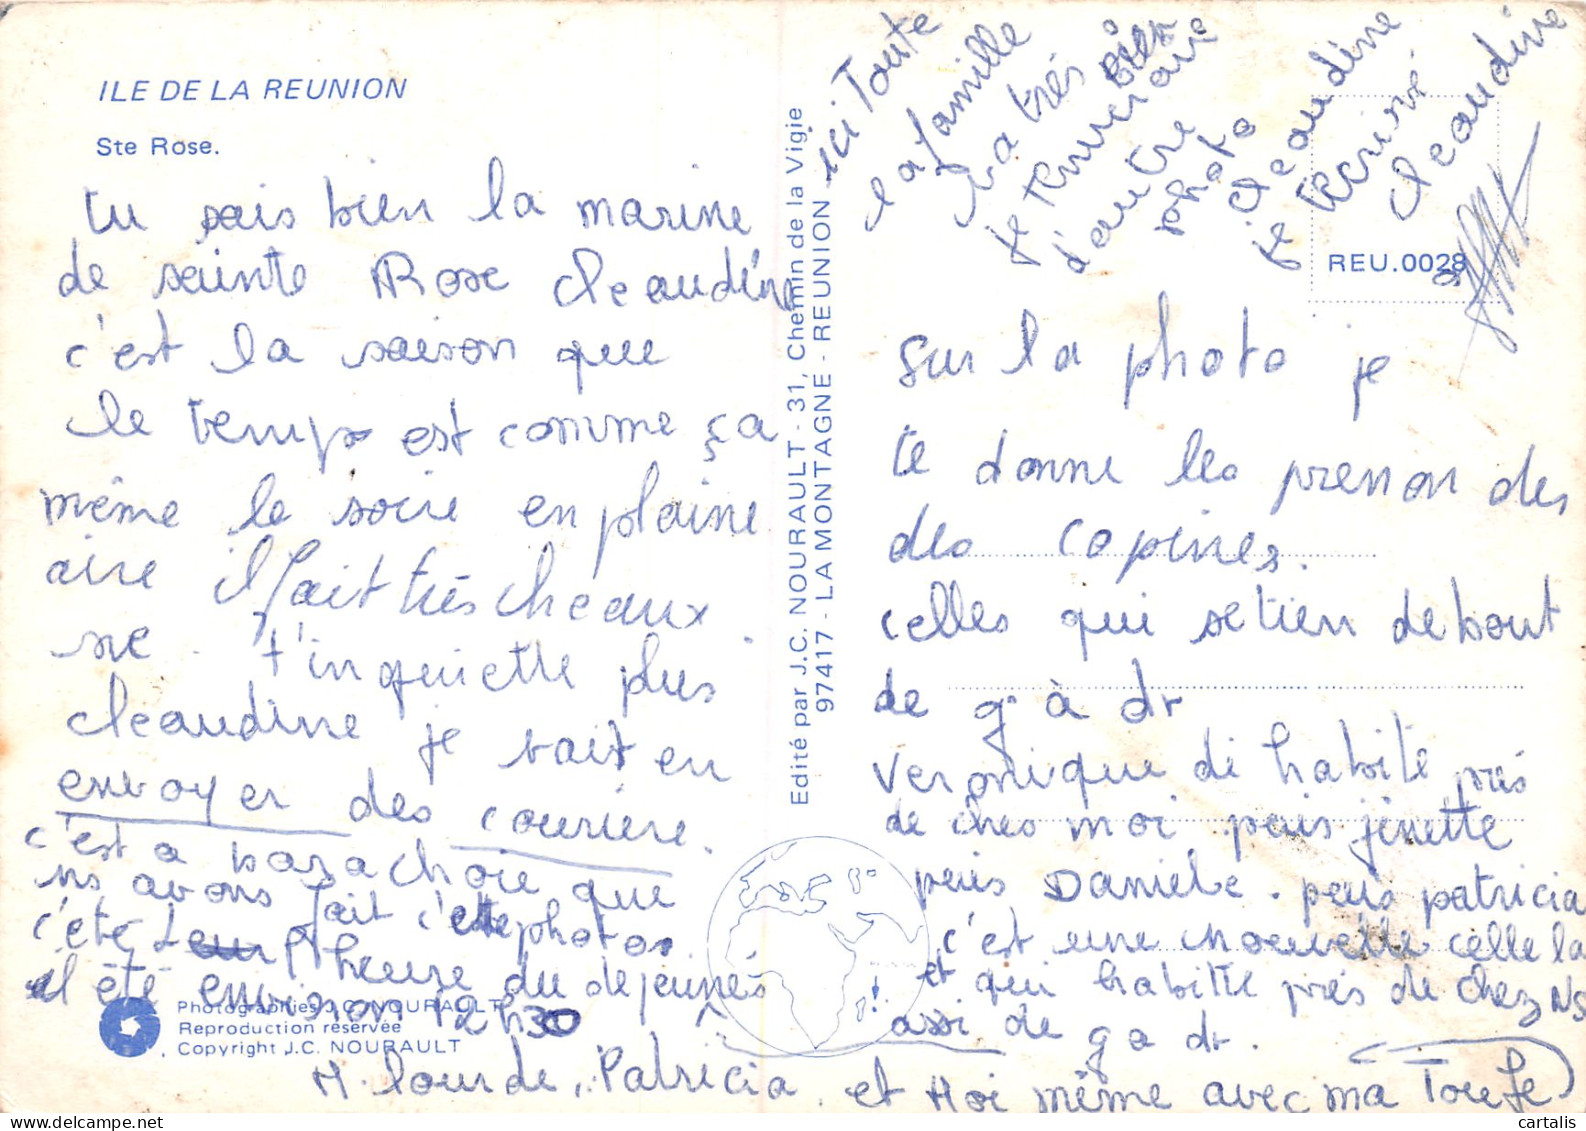 ILE DE LA REUNION
Ste Rose.
tu sais bien la marine
de sainte Rose cleaudine
c'est la saison que
le temps est comme ça
même le soire en plaine
aire il fait très cheaux
ne t'inquiette plus
cleaudine je vait en
envoyer des courière.
c'est a barachoie que
ns avons fait c'ette photos
c'été l'heure du dejeunés
il été environ 12h30
Photographies J.C. NOURAULT
Reproduction réservée
Copyright J.C. NOURAULT
Edité par J.C. NOURAULT - 31, Chemin de la Vigie
97417 - LA MONTAGNE - REUNION
ici Toute
la famille
va très bien
je t'enveraie
d'autre
photo
cleaudine
je t'ecrivé
cleaudine
REU.0028
sur la photo je
te donne les prenon des
des copines.
celles qui se tien debout
de g à dt
veronique di habite près
de ches moi puis jinette
puis Daniele. puis patricia
c'est une nouvelle celle la
et qui habitte près de chez Ns
assi de g a dt.
M. lourde, Patricia et Moi même avec ma Toufe
cartalis